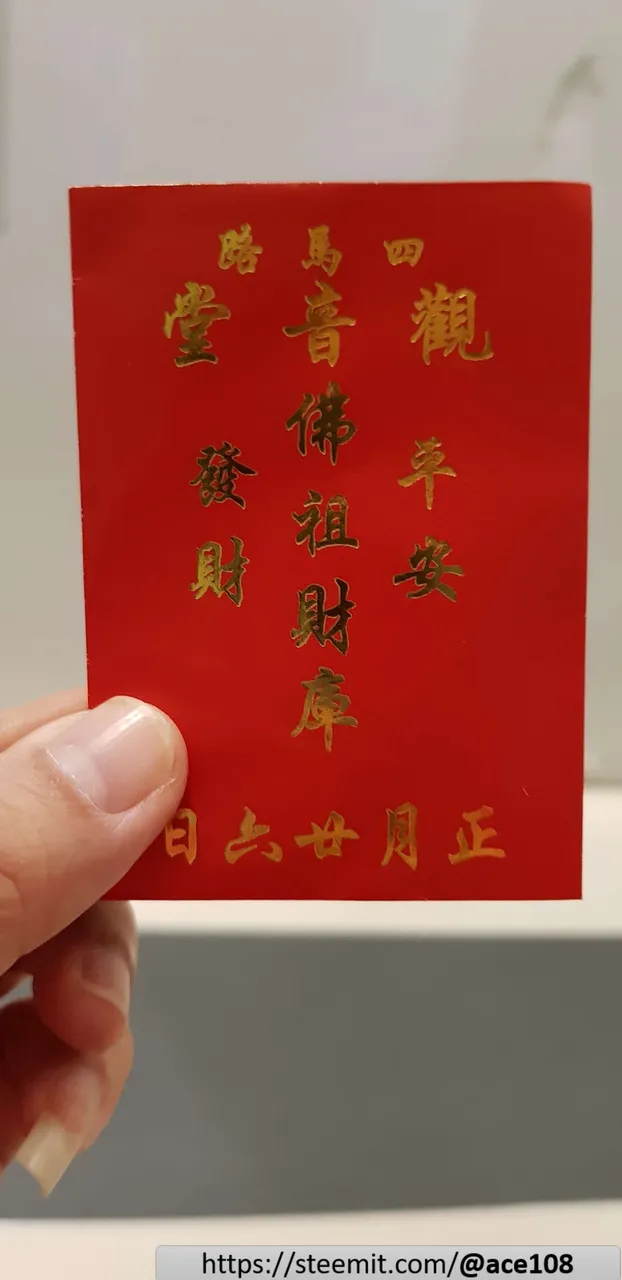 四馬路
觀音堂
平安
佛祖財庫
發財
正月廿六日
https://steemit.com/@ace108